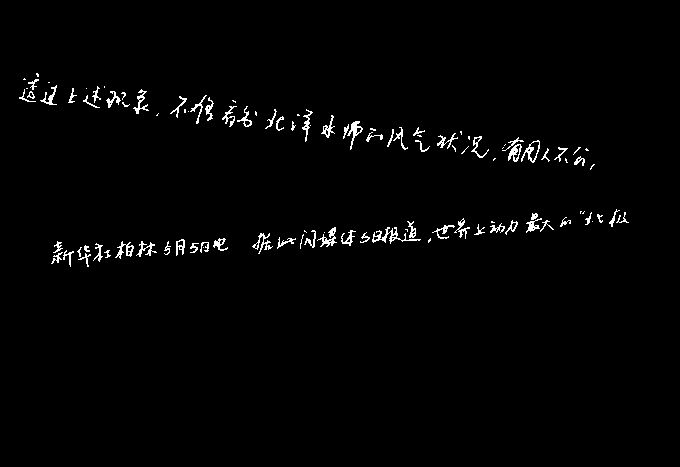 透过上述现象,不难看出北洋水师的风气状况,有用人不公,
新华社柏林5月5日电 据此间媒体5日报道,世界上动力最大的“北极